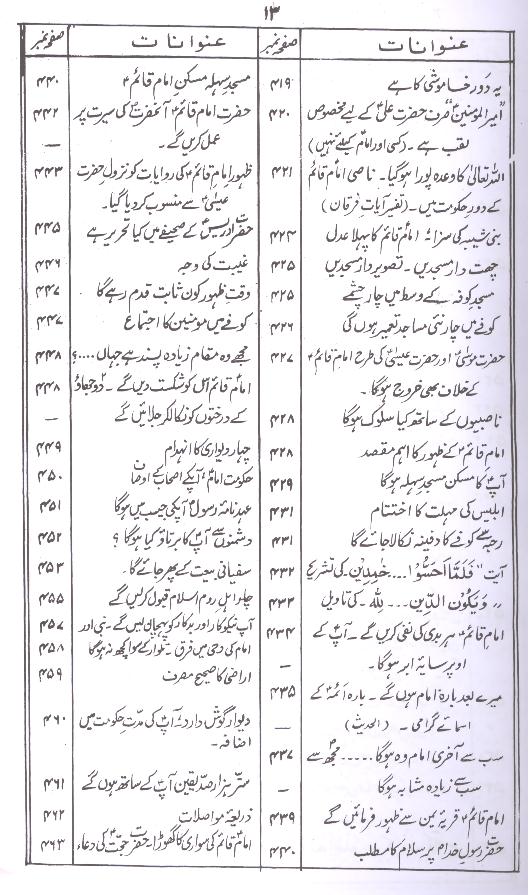 ۱۳
عنوانات صفحہ نمبر
یہ دَور خاموشی کا ہے ۴۱۹
"امیرالمومنینؑ" صرف حضرت علیؑ کے لیے مخصوص ۴۲۰
لقب ہے۔ (کسی اور امام کیلئے نہیں)
اللہ تعالیٰ کا وعدہ پورا ہوگیا۔ ناصبی امام قائمؑ ۴۲۱
کے دورِ حکومت میں۔ (تفسیر آیاتِ فرقان)
بنی شیبہ کی سزا؛ امام قائمؑ کا پہلا عدل ۴۲۴
چھت دار مسجدیں۔ تصویر دار مسجدیں ۴۲۵
مسجدِ کوفہ کے وسط میں چار چشمے ۴۲۵
کوفے میں چار نئی مساجد تعمیر ہوں گی ۴۲۶
حضرت موسیٰؑ اور حضرت عیسیٰؑ کی طرح امام قائمؑ ۴۲۷
کے خلاف بھی خروج ہوگا۔
ناصبیوں کے ساتھ کیا سلوک ہوگا ۴۲۸
امام قائمؑ کے ظہور کا اہم مقصد ۴۲۸
آپؑ کا مسکن مسجدِ سہلہ ہوگا ۴۲۹
ابلیس کی مہلت کا اختتام ۴۳۱
رحبہ سے کوفے کا دفینہ نکالا جائے گا ۴۳۱
آیت "فَلَمَّا اَحَسُّوْا .... خٰمِدِیْنَ کی تشریح ۴۳۲
〃 وَیَکُوْنَ الدِّیْنُ ... لِلّٰہِ۔ کی تاویل ۴۳۳
امام قائمؑ ہر بدی کی نفی کریں گے۔ آپؑ کے ۴۳۴
اوپر سایۂ ابر ہوگا۔ –
میرے بعد بارہ امام ہوں گے۔ بارہ ائمہؑ کے ۴۳۵
اسمائے گرامی۔ (الحدیث) –
سب سے آخری امام وہ ہوگا ..... مجھ سے ۴۳۷
سب سے زیادہ مشابہ ہوگا –
امام قائمؑ قریۂ یمن سے ظہور فرمائیں گے ۴۳۹
حضرت رسولِ خداؐ پر سلام کا مطلب ۴۴۰
عنوانات صفحہ نمبر
مسجدِ سہلہ مسکن امام قائمؑ ۴۴۰
حضرت امام قائمؑ آنحضرتؐ کی سیرت پر ۴۴۲
عمل کریں گے۔ –
ظہورِ امام قائمؑ کی روایات کو نزولِ حضرت ۴۴۳
عیسیٰؑ سے منسوب کر دیا گیا۔
حضرت ادریسؑ کے صحیفے میں کیا تحریر ہے ۴۴۵
غیبت کی وجہ ۴۴۶
وقتِ ظہور کون ثابت قدم رہے گا ۴۴۷
کوفے میں مومنین کا اجتماع ۴۴۷
مجھے وہ مقام زیادہ پسند ہے جہاں ....؟ ۴۴۸
امام قائمؑ اس کو شکست دیں گے۔ ۴۴۸
کے درختوں کو نکال کر جلائیں گے –
چہار دیواری کا انہدام ۴۴۹
حکومتِ امامؑ، آپ کے اصحاب کے اوصاف ۴۵۰
عہدنامۂ رسولؐ آپ کی جیب میں ہوگا ۴۵۱
دشمنوں سے آپؑ کا برتاؤ کیا ہوگا؟ ۴۵۲
سفیانی بیعت کے پھر جائے گا۔ ۴۵۳
چار اہلِ روم اسلام قبول کر لیں گے ۴۵۵
آپ نیکوکار اور بدکار کو پہچان لیں گے۔ نبی اور ۴۵۷
امام کی وحی میں فرق۔ تلوار کے سوا کچھ نہ ہوگا ۴۵۸
اراضی کا صحیح مصرف ۴۵۹
دیوار گوش دارد؛ آپؑ کی مدّتِ حکومت میں ۴۶۰
اضافہ۔
ستّر ہزار صدّیقین آپؑ کے ساتھ ہوں گے ۴۶۱
ذریعۂ مواصلات ۴۶۲
امام قائمؑ کی سواری کا گھوڑا؛ حضرت حجتؑ کی دعاء ۴۶۳